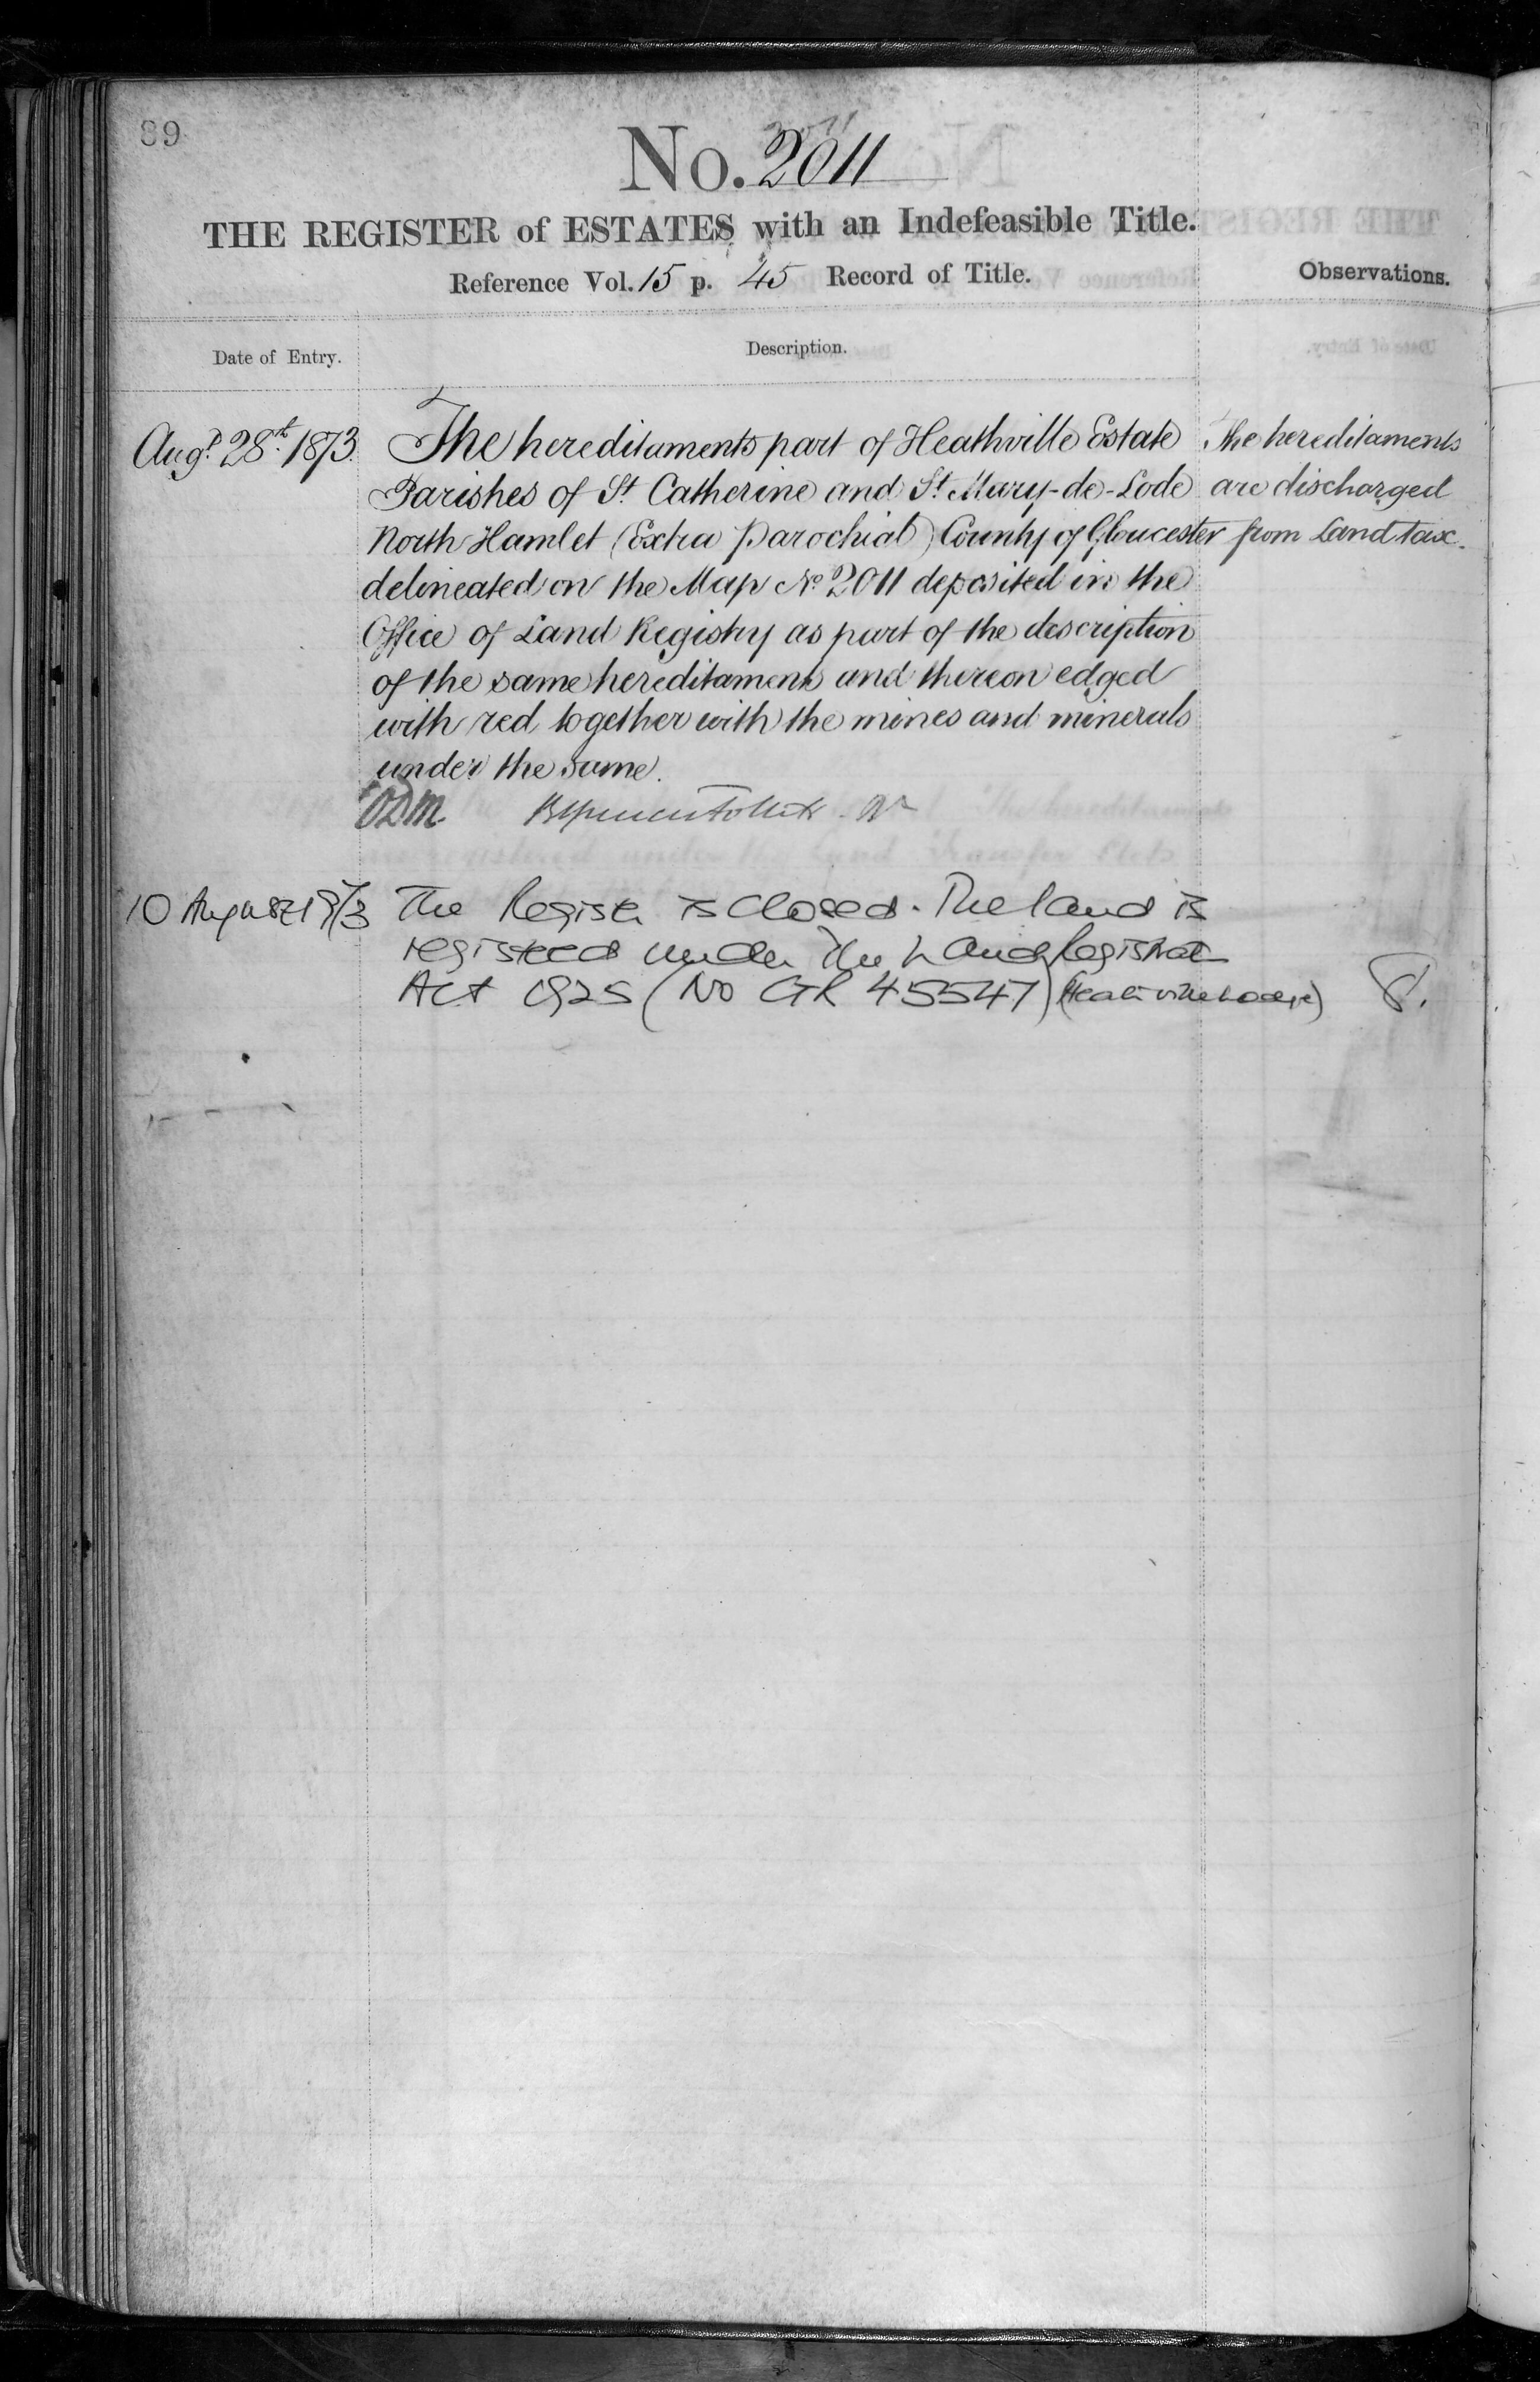 89
No. 2011
THE REGISTER of ESTATES with an Indefeasible Title.
Reference Vol. 15 p. 45 Record of Title.
Observations.
Date of Entry.
Description.
Augst 28th 1873. The hereditaments part of Heathville Estate
Parishes of St Catherine and St Mary-de-Lode
North Hamlet (Extra Parochial) County of Gloucester
delineated on the Map No 2011 deposited in the
Office of Land Registry as part of the description
of the same hereditaments and thereon edged
with red together with the mines and minerals
under the same.
The hereditaments
are discharged
from Land tax.
10 August 1973 The Register is closed. The land is
registered under the Land Registration
Act 1925 (No GR 45547) (Heathville Lodge)